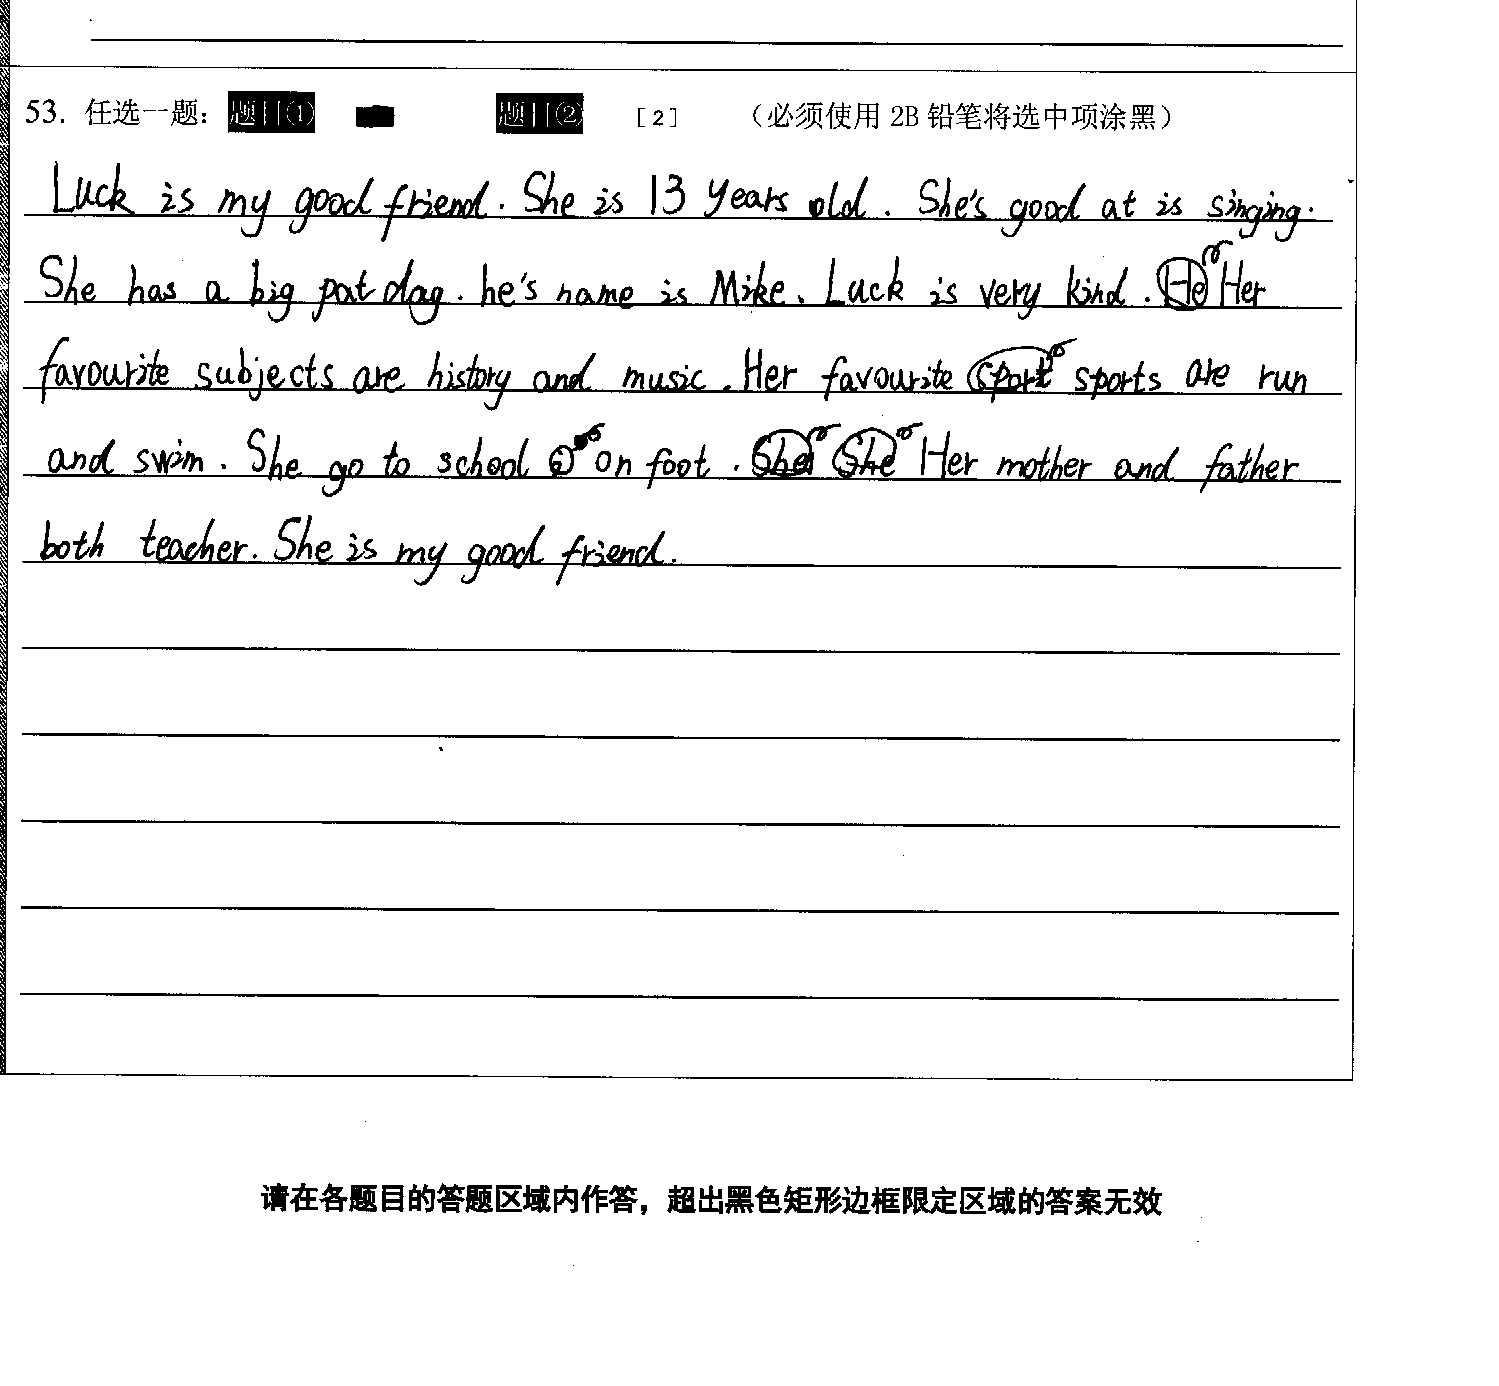 53. 任选一题: 题目① 题目② [2] (必须使用 2B 铅笔将选中项涂黑)
Luck is my good friend. She is 13 years old. She's good at is singing.
She has a big pat dag. he's name is Mike. Luck is very kind. He Her
favourite subjects are history and music. Her favourite sport sports are run
and swim. She go to school on foot. She She Her mother and father
both teacher. She is my good friend.
请在各题目的答题区域内作答，超出黑色矩形边框限定区域的答案无效